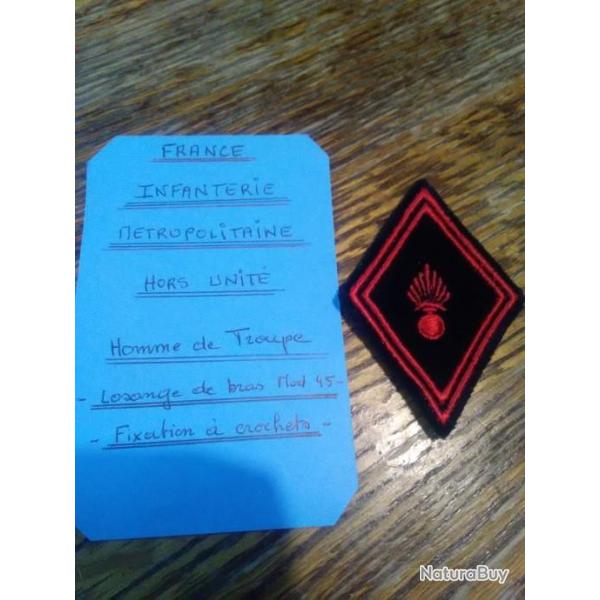 FRANCE
INFANTERIE
METROPOLITAINE
HORS UNITÉ
Homme de Troupe
- Losange de bras Mod 45 -
- Fixation à crochets -
NaturaBuy